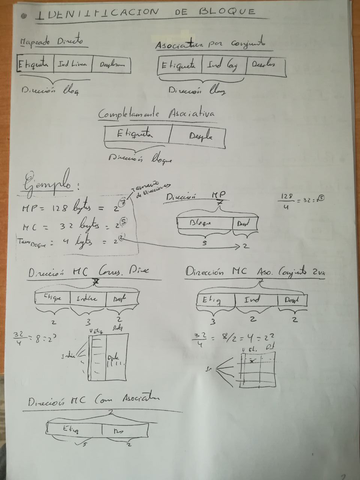 * IDENTIFICACION DE BLOQUE
Mapeado Directo
Etiqueta
Dirección bloq
Asociativa por conjunto
Etiqueta
Dirección Bloq
Completamente Asociativa
Etiqueta Despla
Dirección bloque
Ejemplo:
MP = 128 bytes = 2⁷
MC = 32 bytes = 2⁵
Tam Bloque = 4 bytes = 2²
Dirección MP
7
Bloque Des
5 2
128/4 = 32 = 2⁵
Dirección MC
7
Etiq Indice Des
2 3 2
32/4 = 8 = 2³
Dirección MC Aso. Conjunto 2va
7
Etiq Ind Desp
3 2 2
32/4 = 8/2 = 4 = 2²
Dirección MC Com Asociativa
7
Etiq
5 2